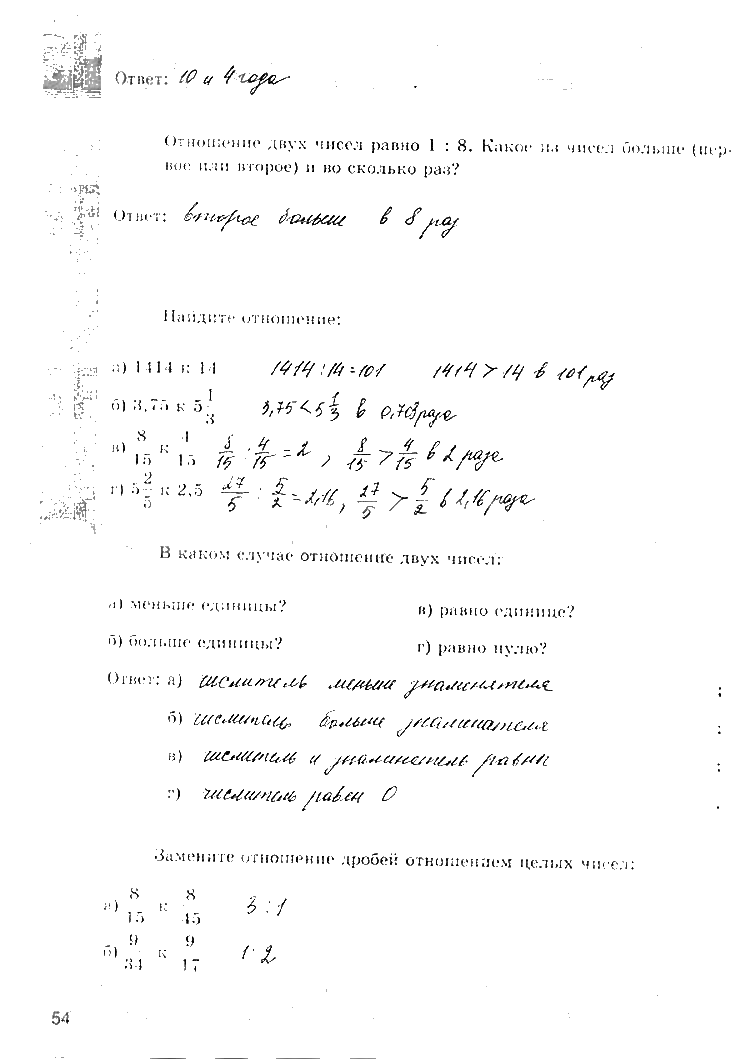 Ответ: 10 и 4 года
Отношение двух чисел равно 1 : 8. Какое из чисел больше (пер-
вое или второе) и во сколько раз?
Ответ: второе больше в 8 раз
Найдите отношение:
а) 1414 к 14 1414 : 14 = 101 1414 > 14 в 101 раз
б) 3,75 к 5 1/3 3,75 < 5 1/3 в 0,703 раза
в) 8/15 к 4/15 8/15 : 4/15 = 2, 8/15 > 4/15 в 2 раза
г) 5 2/5 к 2,5 27/5 : 5/2 = 2,16, 27/5 > 5/2 в 2,16 раза
В каком случае отношение двух чисел:
а) меньше единицы? в) равно единице?
б) больше единицы? г) равно нулю?
Ответ: а) числитель меньше знаменателя ;
б) числитель больше знаменателя ;
в) числитель и знаменатель равны ;
г) числитель равен 0 .
Замените отношение дробей отношением целых чисел:
а) 8/15 к 8/45 3 : 1
б) 9/34 к 9/17 1 : 2
54